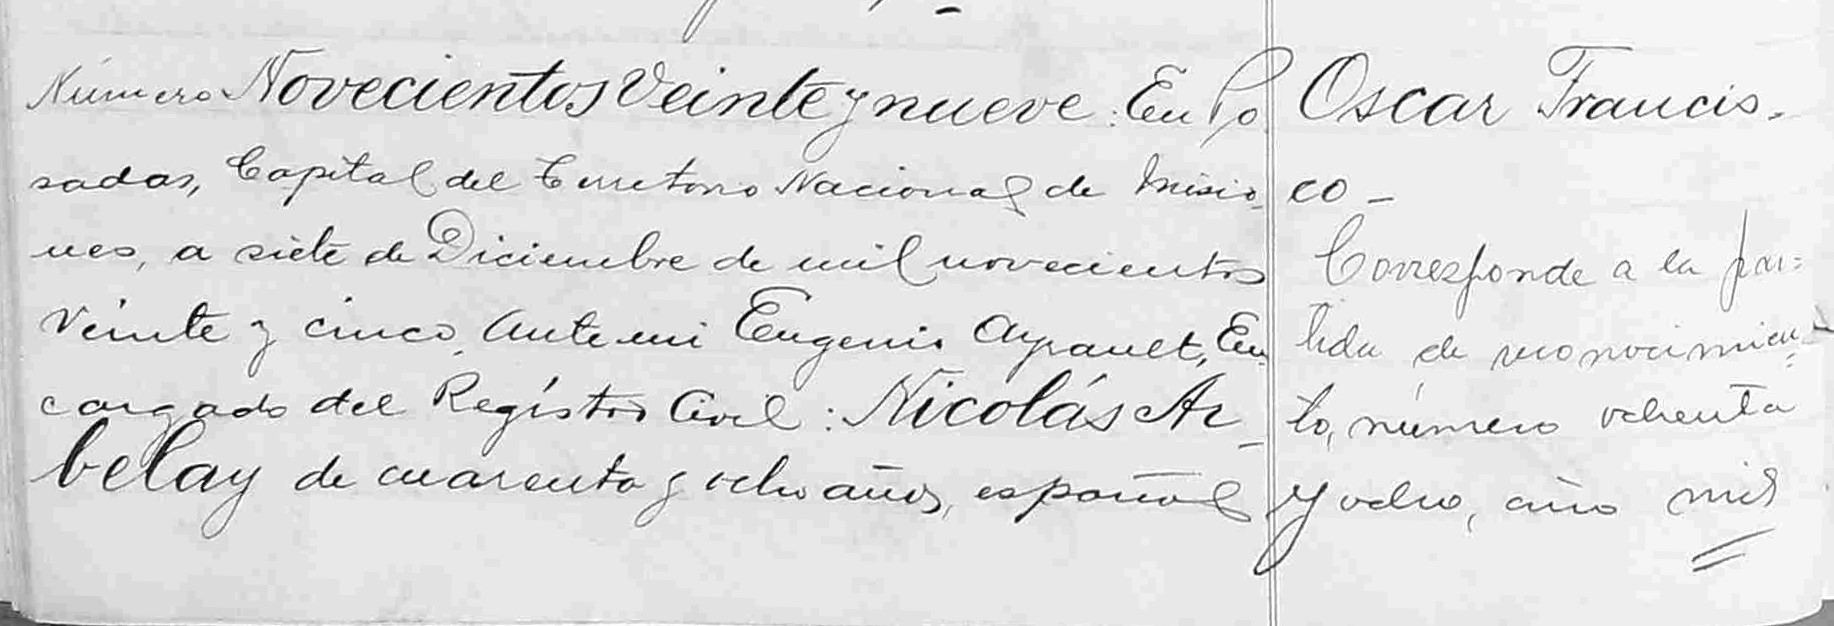 Número Novecientos Veinte y nueve: En Po
sadas, Capital del Territorio Nacional de Misio_
nes, a siete de Diciembre de mil novecientos
Veinte y cinco, ante mi Eugenio Ayrault, En_
cargado del Registro Civil: Nicolás Ar_
belay de cuarenta y ocho años, español
Oscar Francis_
co _
Corresponde a la par=
tida de reconocimien_
to, número ochenta
y ocho, año mil